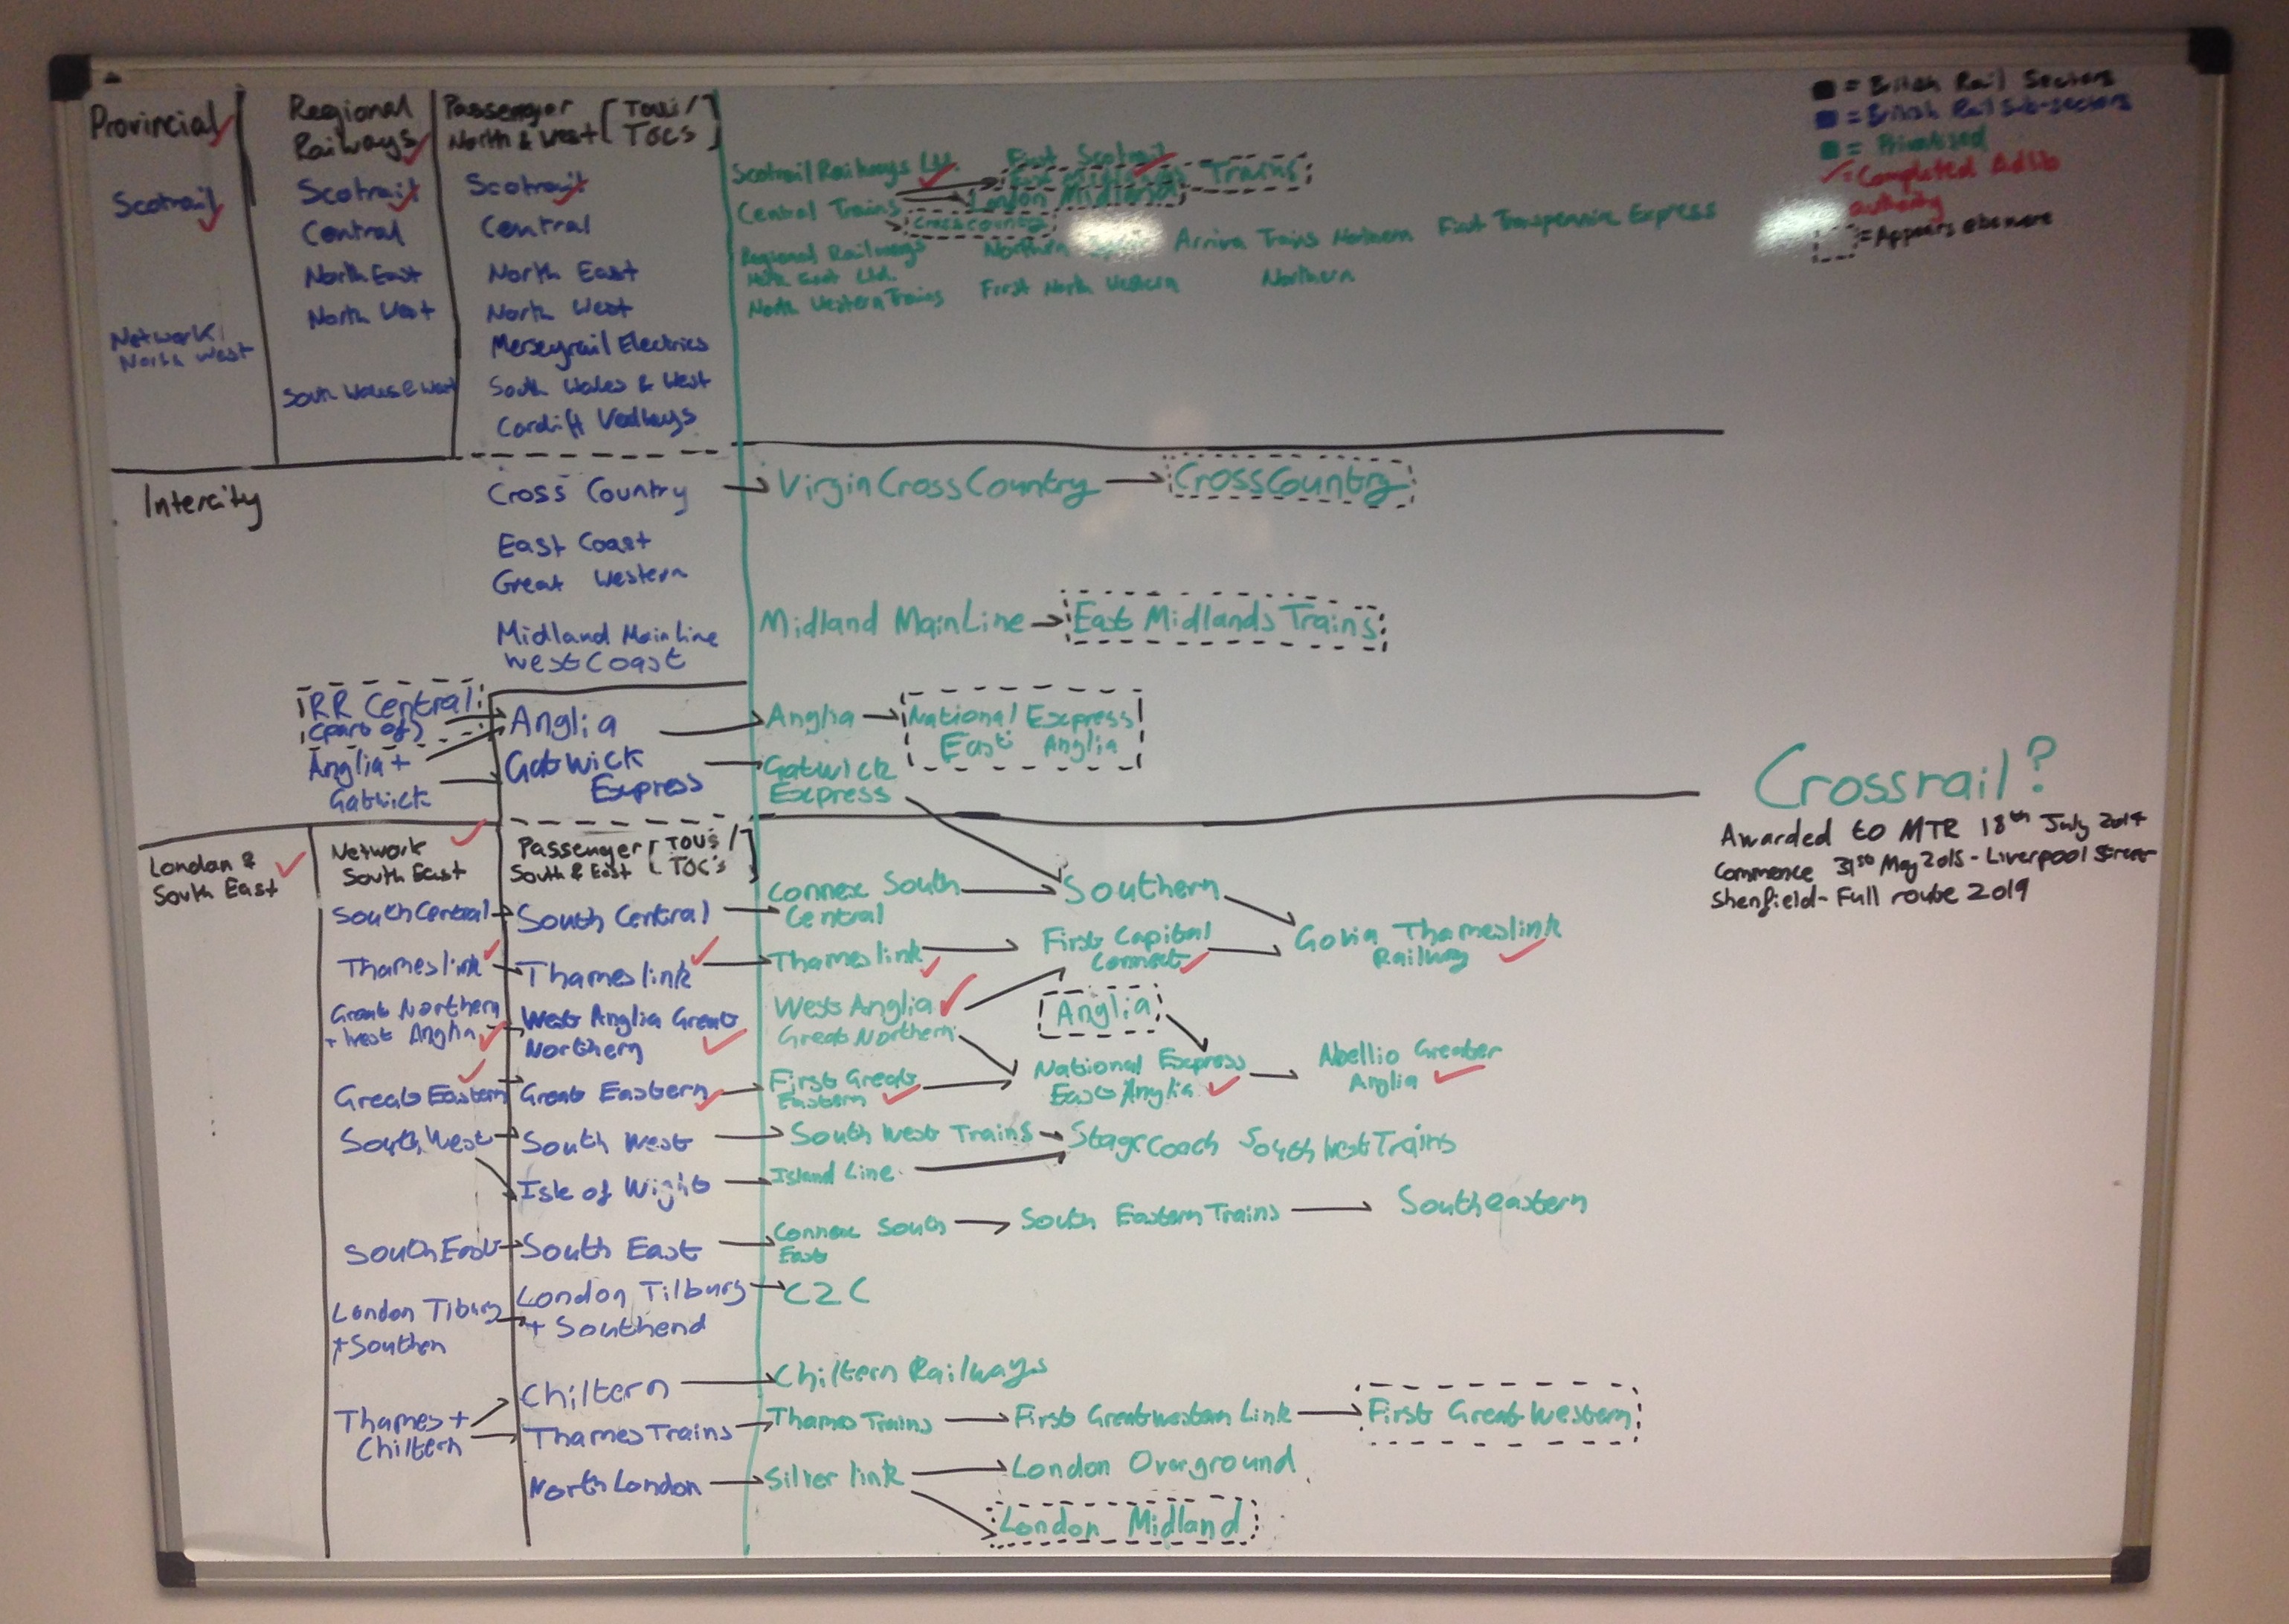 Provincial
Scotrail
Network
North West
Regional
Railways
Scotrail
Central
North East
North West
South Wales & West
Passenger
North & West [TOUs/
TOCs]
Scotrail
Central
North East
North West
Merseyrail Electrics
South Wales & West
Cardiff Valleys
Scotrail Railways Ltd.
First Scotrail
Central Trains
Trains
London Midland
Crosscountry
Regional Railways
North East Ltd.
Northern
Arriva Trains Northern
First Transpennine Express
North Western Trains
First North Western
Northern
■ = British Rail Sectors
■ = British Rail Sub-sectors
■ = Privatised
✓ = Completed Adlib
authority
= Appears elsewere
Intercity
Cross Country
East Coast
Great Western
Midland MainLine
West Coast
Virgin CrossCountry
CrossCountry
Midland MainLine
East Midlands Trains
RR Central
(part of)
Anglia +
Gatwick
Anglia
Gatwick
Express
Anglia
National Express
East Anglia
Gatwick
Express
Crossrail?
Awarded to MTR 18th July 2014
Commence 31st May 2015 - Liverpool Street
Shenfield - Full route 2019
London &
South East
Network
South East
Passenger [TOU's/
South & East TOC's]
South Central
South Central
Connex South
Central
Southern
Thameslink
Thameslink
Thameslink
First Capital
Connect
Govia Thameslink
Railway
Great Northern
+ West Anglia
West Anglia Great
Northern
West Anglia
Great Northern
Anglia
Great Eastern
Great Eastern
First Great
Eastern
National Express
East Anglia
Abellio Greater
Anglia
South West
South West
South West Trains
Stagecoach South West Trains
Isle of Wight
Island Line
South East
South East
Connex South
East
South Eastern Trains
Southeastern
London Tilbury
+ Southen
London Tilbury
+ Southend
C2C
Thames +
Chiltern
Chiltern
Chiltern Railways
Thames Trains
Thames Trains
First Great Western Link
First Great Western
North London
Silverlink
London Overground
London Midland